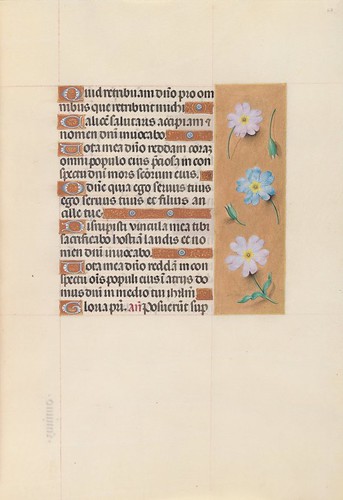 Quid retribuam dño pro om
nibus que retribuit michi
Calicē salutaris accipiam et
nomen dm̄ inuocabo.
Uota mea dño reddam corā
omni populo eius p̄ciosa in con
spectu dm̄ mors sctorum eius.
O dñe quia ego seruus tuus
ego seruus tuus et filius an
cille tue.
Dirupisti uincula mea tibi
sacrificabo hostiā laudis et no
men dm̄ inuocabo.
Uota mea dño reddā in con
spectu ois populi eius ī atrijs do
mus dm̄ in medio tui ihrlm̄.
Gloria pri. añ Posuerūt sup